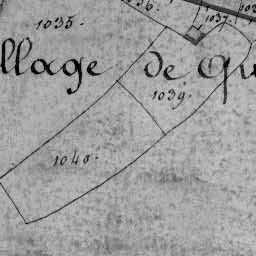 1036.
1037.
1035.
llage de Qu
1039.
1040.